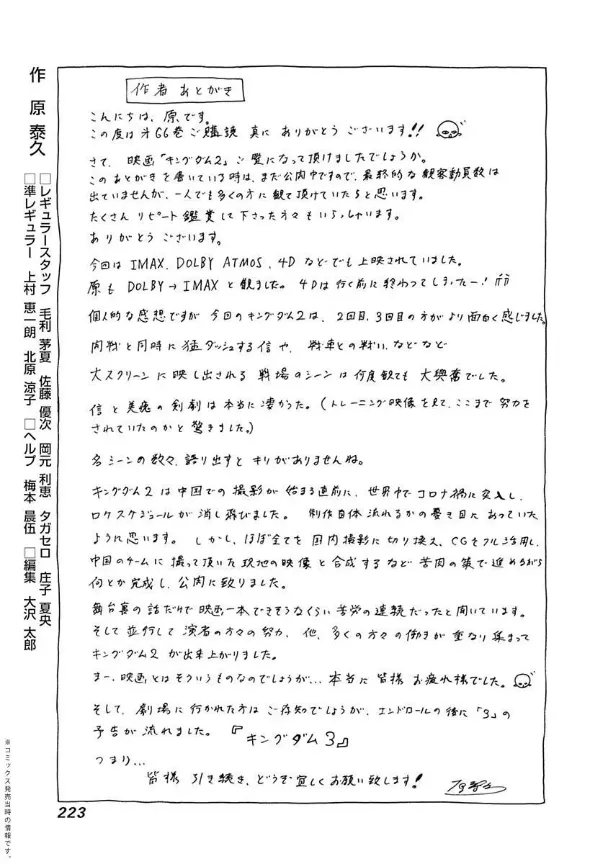 作者 あとがき
こんにちは、原です。
この度は才66巻ご購読 真に ありがとう ございます!!
さて、映画「キングダム2」ご覧になって頂けましたでしょうか。
このあとがきを書いている時は、まだ公開中ですので、最終的な観客動員数は
出ていませんが、一人でも多くの方に観て頂けていたらと思います。
たくさん リピート鑑賞して下さった方々もいらっしゃいます。
ありがとう ございます。
今回は IMAX、DOLBY ATMOS、4D などでも上映されていました。
原も DOLBY→IMAX と観ました。4Dは行く前に終わってしまったー!
個人的な感想ですが 今回のキングダム2は、2回目、3回目の方がより面白く感じました。
開戦と同時に猛ダッシュする信や、戦車との戦い、などなど
大スクリーンに映し出される 戦場のシーンは何度観ても大興奮でした。
信と羌瘣の剣劇は本当に凄かった。(トレーニング映像を見て、ここまで努力を
されていたのかと驚きました。)
名シーンの数々、語り出すとキリがありませんね。
キングダム2は中国での撮影が始まる直前に、世界中でコロナ禍に突入し、
ロケスケジュールが消し飛びました。制作自体流れるかの憂き目にあっていた
ように思います。しかし、ほぼ全てを国内撮影に切り換え、CGをフル活用し、
中国のチームに撮って頂いた現地の映像と合成するなど苦肉の策で進めながら
何とか完成し、公開に至りました。
舞台裏の話だけで映画一本できそうなくらい苦労の連続だったと聞いています。
そして並行して演者の方々の努力、他、多くの方々の働きが重なり集まって
キングダム2が出来上がりました。
まー、映画とはそういうものなのでしょうが…本当に皆様お疲れ様でした。
そして、劇場に行かれた方はご存知でしょうが、エンドロールの後に「3」の
予告が流れました。『キングダム3』
つまり…
皆様 引き続き、どうぞ宜しくお願い致します!
223
作 原 泰久
□レギュラースタッフ 毛利 茅夏 佐藤 優次 岡元 利恵 タガセロ 庄子 夏央
□準レギュラー 上村 恵一朗 北原 涼子 □ヘルプ 梅本 晨伍 □編集 大沢 太郎
※コミックス発売当時の情報です。